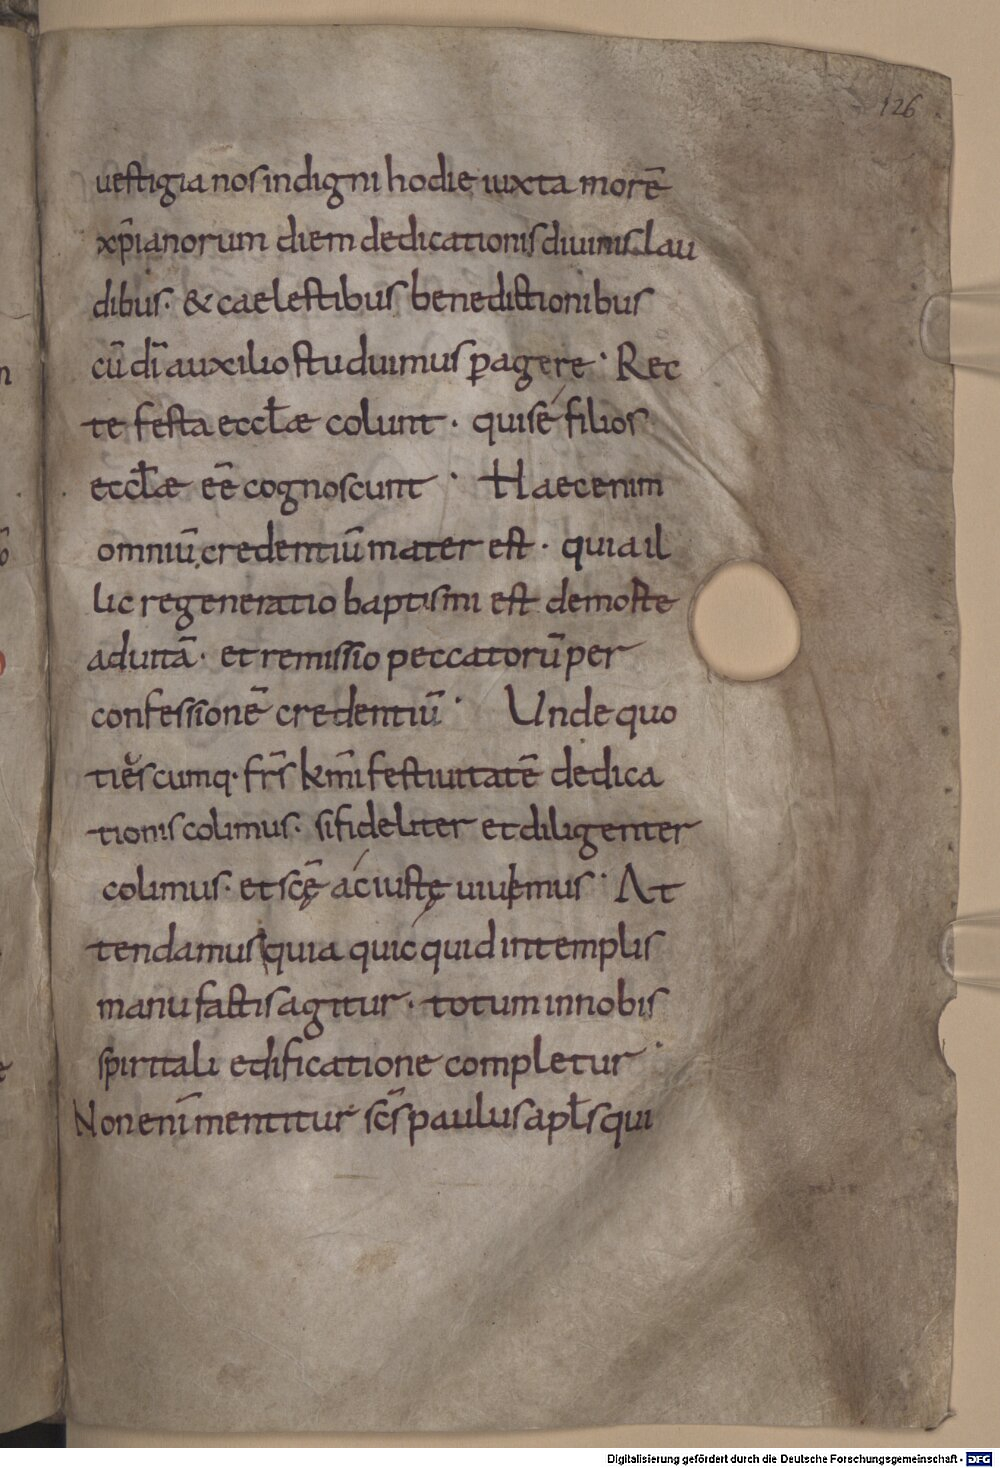 126
uestigia nos indigni hodie iuxta morē
xp̄ianorum diem dedicationis diuinis lau
dibus· & caelestibus benedictionibus
cū dī auxilio studuimus ꝑagere · Rec
te festa eccłae colunt · qui sē filios
eccłae eē cognoscunt · Haec enim
omniū credentiū mater est · quia il
lic regeneratio baptismi est demorte
aduitā · et remissio peccatorū per
confessionē credentiū · Unde quo
tiescumq· frs̄ kmī festiuitatē dedica
tionis colimus · si fideliter et diligenter
colimus · et scę̄ ac iustę uiuemus · At
tendamus quia quicquid in templis
manu factis agitur · totum in nobis
spiritali edificatione completur ·
Non enī mentitur scs̄ paulus apłs qui
Digitalisierung gefördert durch die Deutsche Forschungsgemeinschaft - DFG